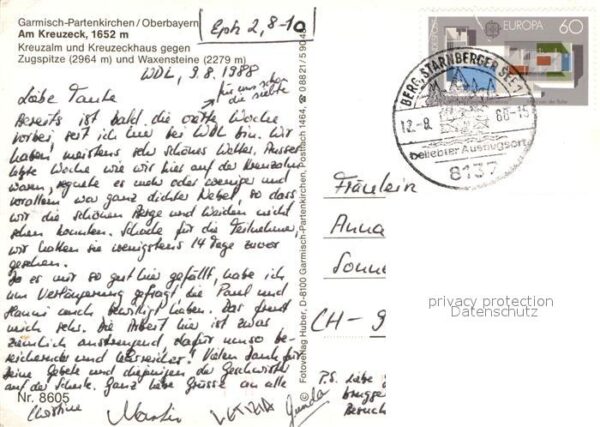 Garmisch-Partenkirchen/Oberbayern
Am Kreuzeck, 1652 m
Kreuzalm und Kreuzeckhaus gegen
Zugspitze (2964 m) und Waxensteine (2279 m)
Eph 2,8-10
WDL, 9.8.1988
Liebe Tante
für uns schon
die siebte
Bereits ist bald die erste Woche
vorbei, seit ich hier bei WDL bin. Wir
haben meistens sehr schönes Wetter. Ausser
letzte Woche wie wir hier auf der Kreuzalm
waren, regnete es mehr oder weniger und
vorallem war ganz dichter Nebel, so dass
wir die schönen Berge und Weiden nicht
sehen konnten. Schade für die Teilnehmer,
wir hatten sie wenigstens 14 Tage zuvor
gesehen.
Da es mir so gut hier gefällt, habe ich
um Verlängerung gefragt, die Paul und
Hanni auch bewilligt haben. Das freut
mich sehr. Die Arbeit hier ist zwar
ziemlich anstrengend, dafür umso be-
reichernder und lehrreicher! Vielen Dank für
Deine Gebete und diejenigen der Geschwister
auf der Schenke. Ganz liebe Grüsse an alle
Nr. 8605
Christine Martin LETIZIA Gunda
© Fotoverlag Huber, D-8100 Garmisch-Partenkirchen, Postfach 1464, ☎ 08821/590
EUROPA 60
BERG, STARNBERGER SEE 1
12.-8. 88-15
beliebter Ausflugsort
8137
Fräulein
Anna
Sonne
CH-9
privacy protection
Datenschutz
P.S. Liebe
Besuch